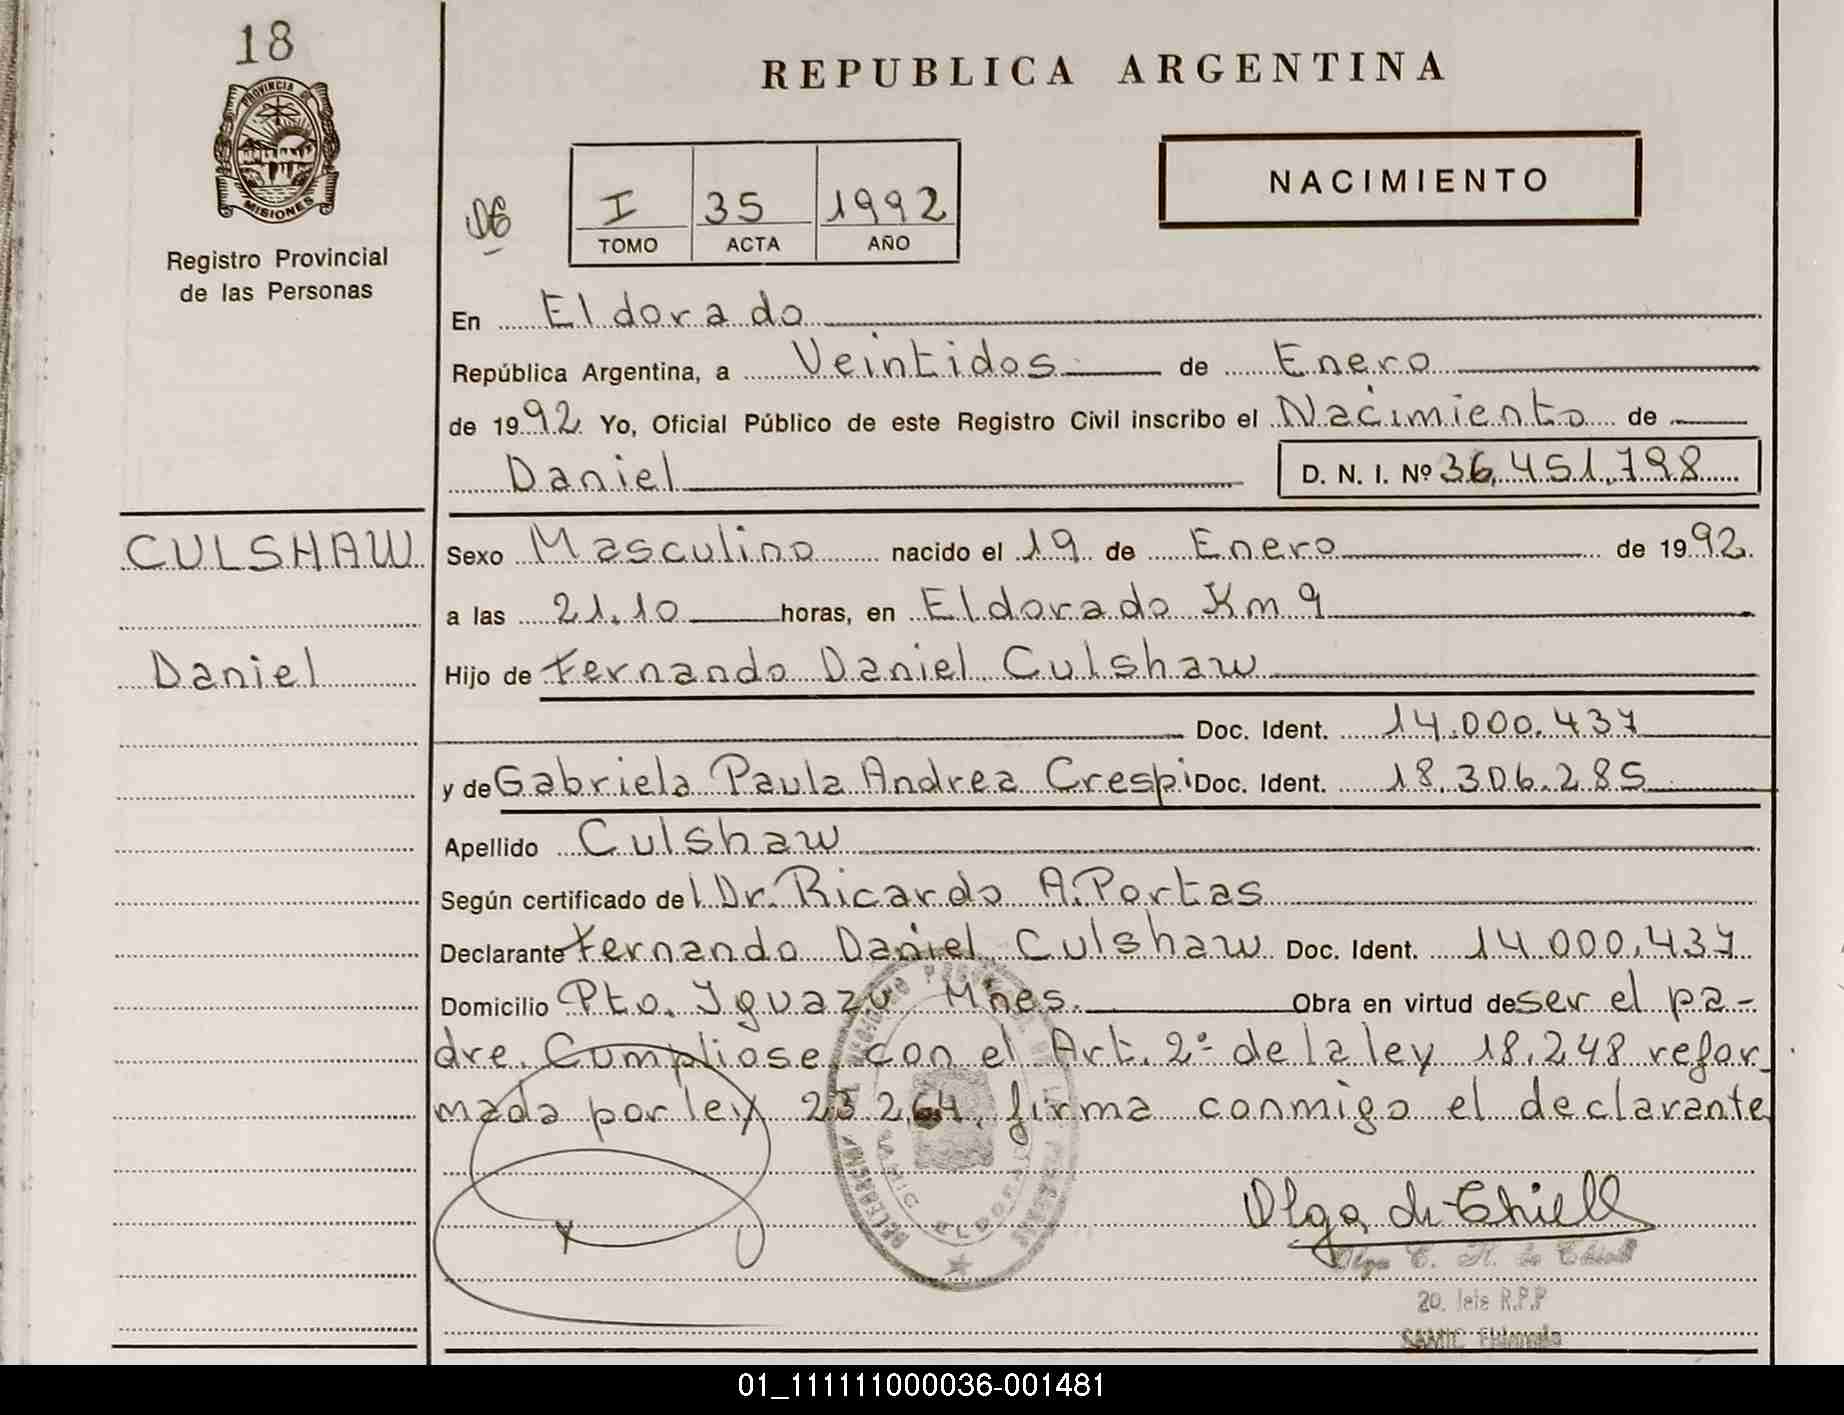 18
PROVINCIA DE
MISIONES
Registro Provincial
de las Personas
REPUBLICA ARGENTINA
NACIMIENTO
I 35 1992
TOMO ACTA AÑO
En Eldorado
República Argentina, a Veintidos de Enero
de 1992 Yo, Oficial Público de este Registro Civil inscribo el Nacimiento de
Daniel D. N. I. Nº 36.451.798
CULSHAW
Daniel
Sexo Masculino nacido el 19 de Enero de 1992
a las 21.10 horas, en Eldorado Km 9
Hijo de Fernando Daniel Culshaw
Doc. Ident. 14.000.437
y de Gabriela Paula Andrea Crespi Doc. Ident. 18.306.285
Apellido Culshaw
Según certificado del Dr. Ricardo A. Portas
Declarante Fernando Daniel Culshaw Doc. Ident. 14.000.437
Domicilio Pto. Iguazu Mnes. Obra en virtud de ser el pa-
dre. Cumpliose con el Art. 2º de la ley 18.248 refor_
mada por ley 23264. firma conmigo el declarante
x
Olga de Chiell
Olga C. H. de Chiell
SAMIC Eldorado
01_111111000036-001481